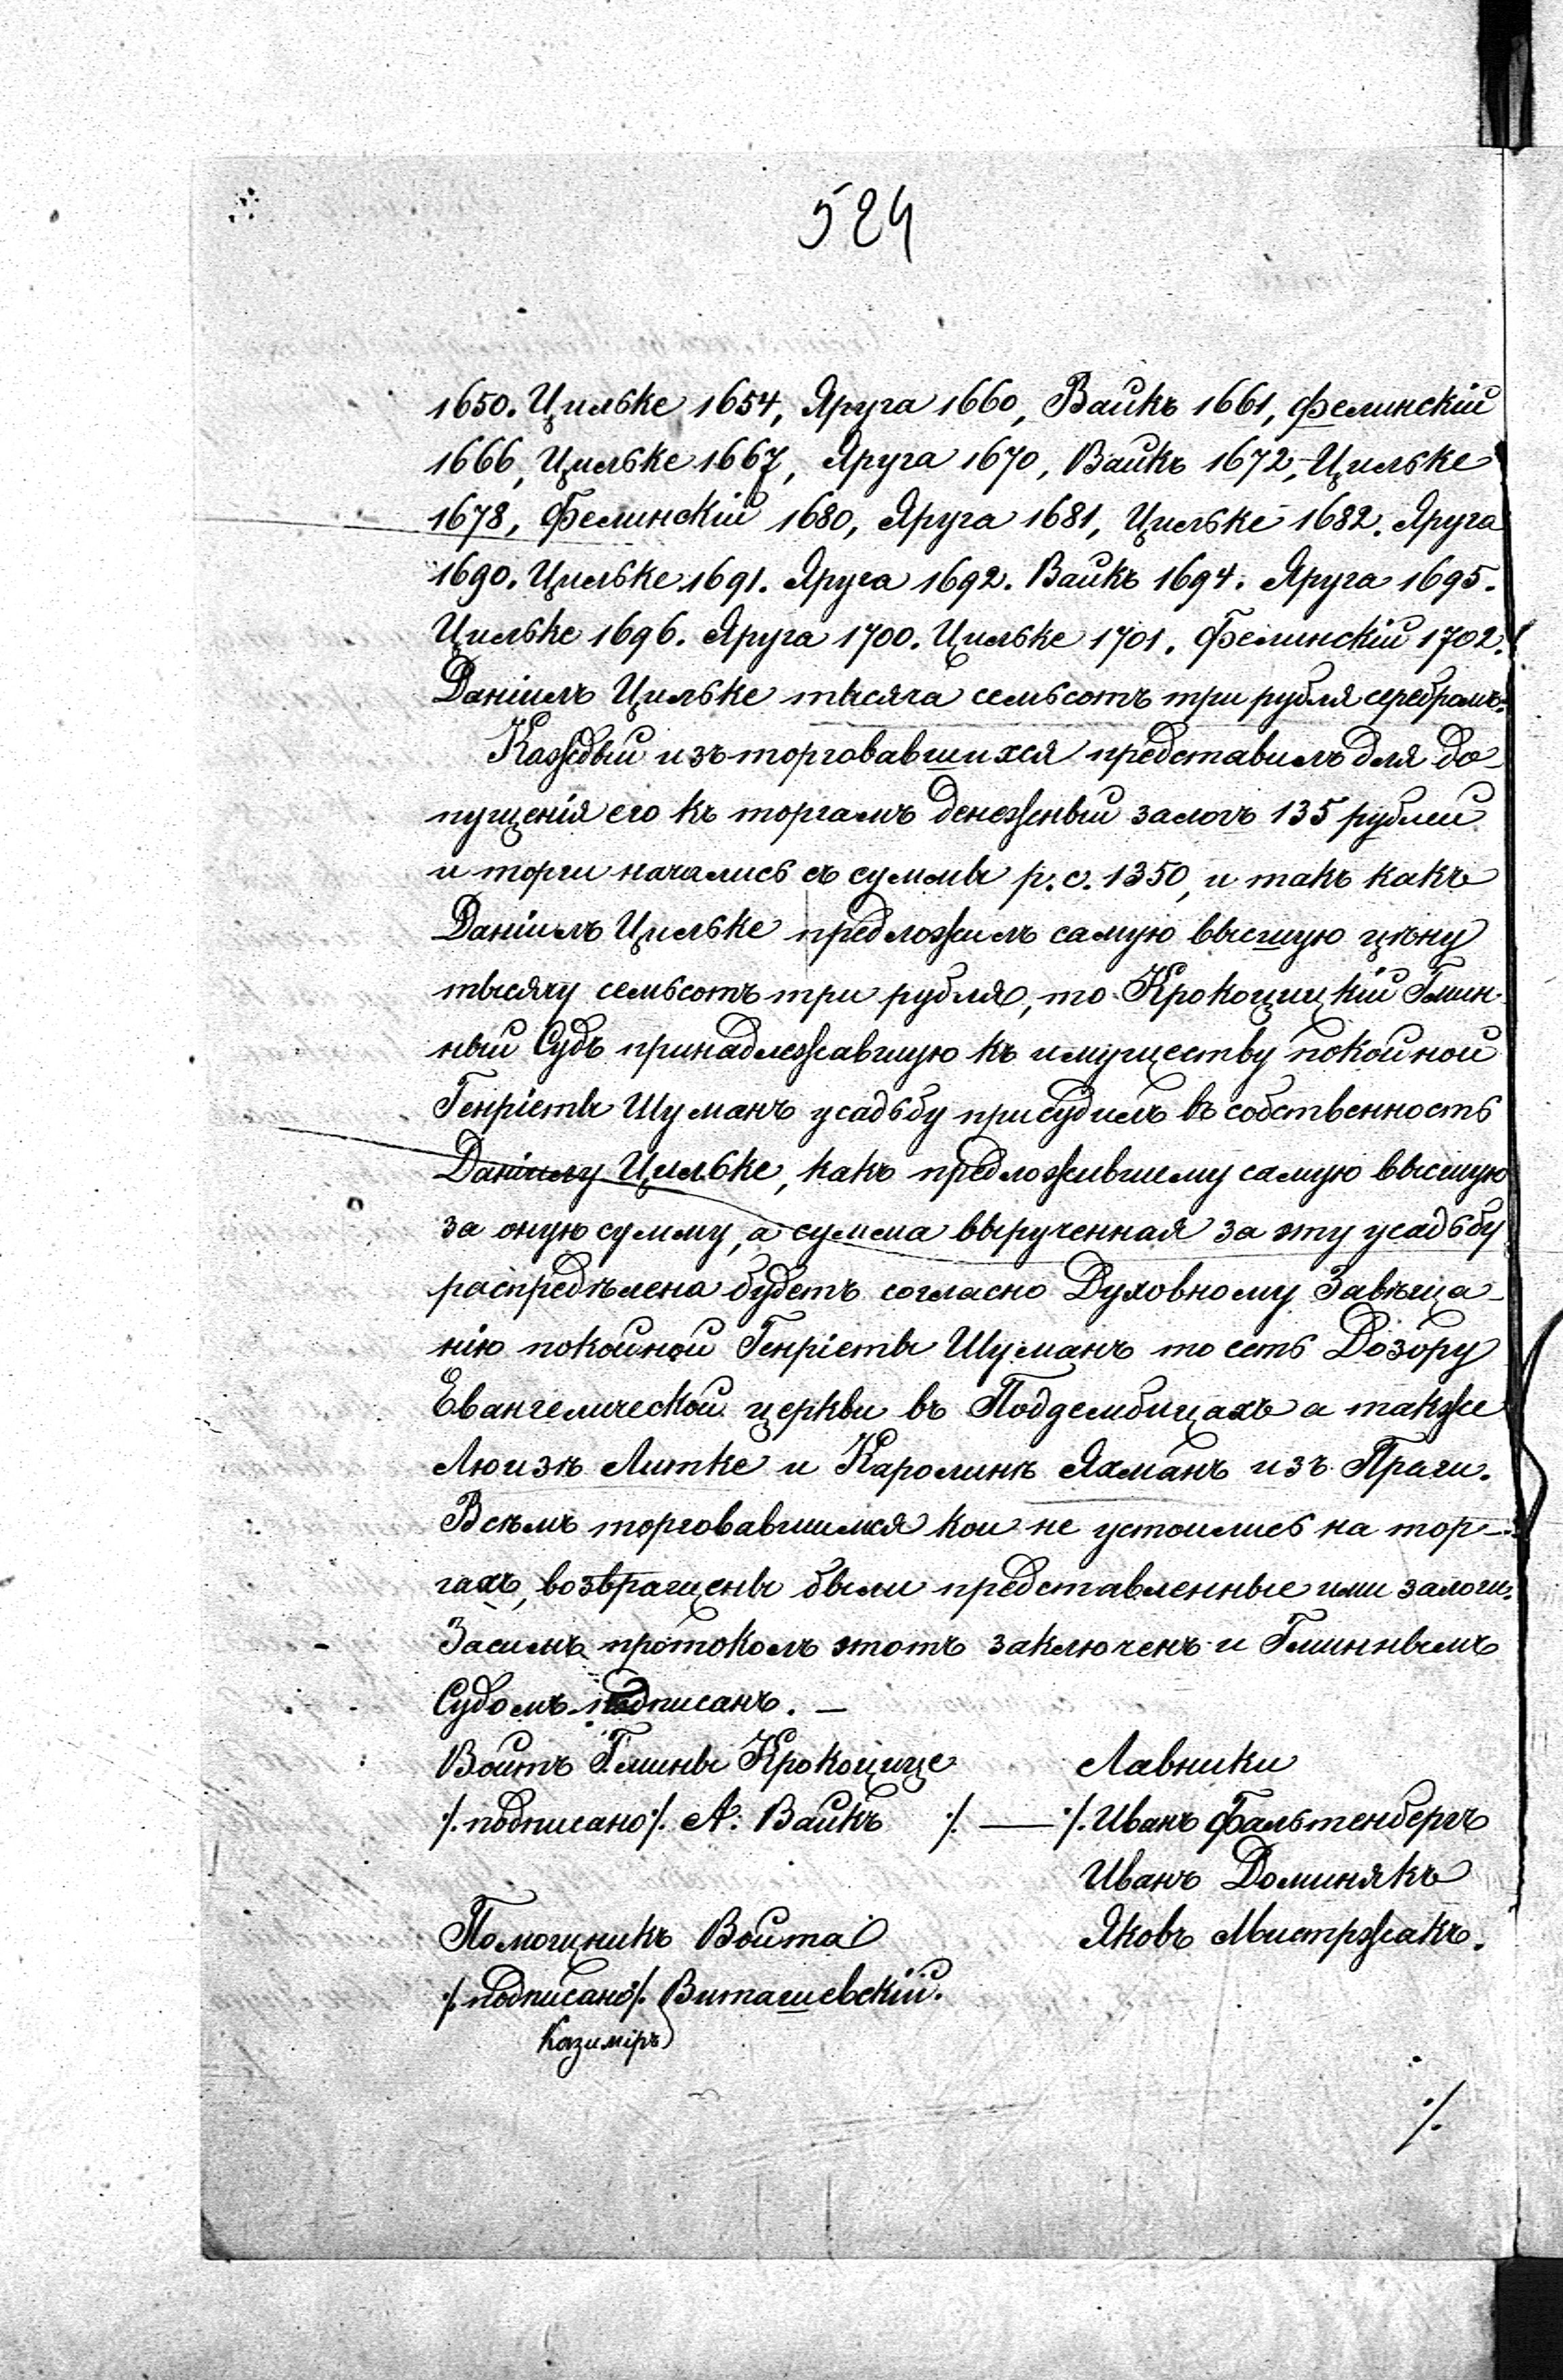 524
1650. Цильке 1654, Яруга 1660, Вайкъ 1661, Фелинскій
1666, Цильке 1667, Яруга 1670, Вайкъ 1672, Цильке
1678, Фелинскій 1680, Яруга 1681, Цильке 1682. Яруга
1690. Цильке 1691. Яруга 1692. Вайкъ 1694. Яруга 1695.
Цильке 1696. Яруга 1700. Цильке 1701. Фелинскій 1702.
Даніилъ Цильке тысяча семьсотъ три рубля серебромъ.
Каждый изъ торговавшихся представилъ для до-
пущенія его къ торгамъ денежный залогъ 135 рублей
и торги начались съ суммы р. с. 1350, и такъ какъ
Даніилъ Цильке предложилъ самую высшую цѣну
тысячу семьсотъ три рубля, то Крокоцицкій Гмин-
ный Судъ принадлежавшую къ имуществу покойной
Генріеты Шуманъ усадьбу присудилъ въ собственность
Даніилу Цильке, какъ предложившему самую высшую
за оную сумму, а сумма вырученная за эту усадьбу
распредѣлена будетъ согласно Духовному Завѣща-
нію покойной Генріеты Шуманъ то есть Дозору
Евангелической церкви въ Поддембицахъ а также
Люизѣ Литке и Каролинѣ Яхманъ изъ Праги.
Всѣмъ торговавшимся кои не устоились на тор-
гахъ, возвращены были представленные ими залоги.
Засимъ протоколъ этотъ заключенъ и Гминнымъ
Судомъ подписанъ. —
Войтъ Гмины Крокоцице Лавники
./. подписано ./. А. Вайкъ ./. — ./. Иванъ Фальтенбергъ
Иванъ Доминякъ
Помощникъ Войта Яковъ Мистржакъ.
./. подписано ./. Виташевскій.
Казиміръ
./.